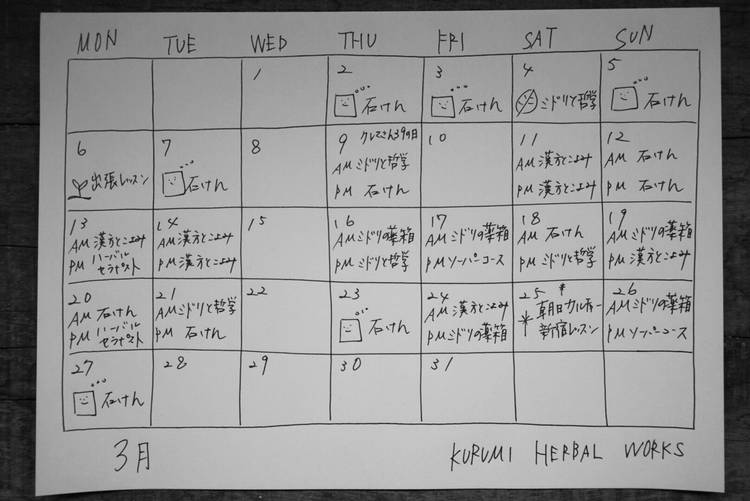 MON TUE WED THU FRI SAT SUN
1 2 3 4 5
石けん 石けん ミドリと哲学 石けん
6 7 8 9 クレミさん39の日 10 11 12
出張レッスン 石けん AM ミドリと哲学 AM 漢方とこよみ AM 石けん
PM 石けん PM 漢方とこよみ PM 石けん
13 14 15 16 17 18 19
AM 漢方とこよみ AM 漢方とこよみ AM ミドリの薬箱 AM ミドリの薬箱 AM 石けん AM ミドリの薬箱
PM ハーバル PM 漢方とこよみ PM ミドリと哲学 PM ソーパーコース PM ミドリと哲学 PM 漢方とこよみ
セラピスト
20 21 22 23 24 25 26
AM 石けん AM ミドリと哲学 石けん AM 漢方とこよみ 朝日カルチャー AM ミドリの薬箱
PM ハーバル PM 石けん PM ミドリの薬箱 新宿レッスン PM ソーパーコース
セラピスト
27 28 29 30 31
石けん
3月 KURUMI HERBAL WORKS